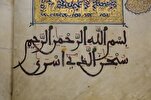 بسم الله الرحمن الرحيم
سبحن الذي أسرى